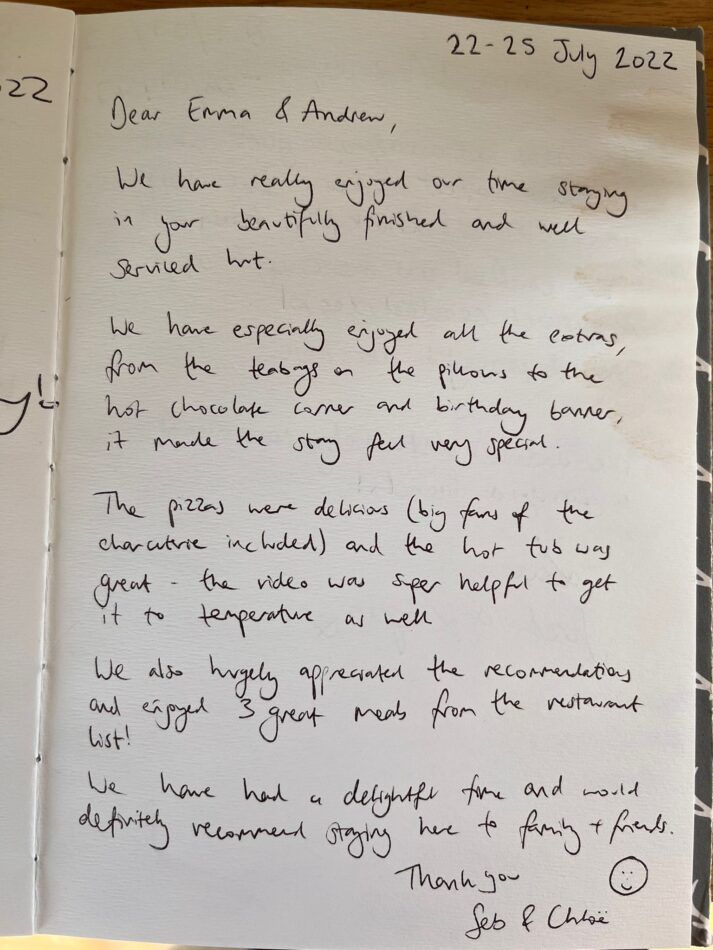 22
y!
22-25 July 2022
Dear Emma & Andrew,
We have really enjoyed our time staying
in your beautifully finished and well
serviced hut.
We have especially enjoyed all the extras,
from the teabags on the pillows to the
hot chocolate corner and birthday banner,
it made the stay feel very special.
The pizzas were delicious (big fans of the
charcutrie included) and the hot tub was
great - the video was super helpful to get
it to temperature as well
We also hugely appreciated the recommendations
and enjoyed 3 great meals from the restaurant
list!
We have had a delightful time and would
definitely recommend staying here to family + friends.
Thank you
Seb & Chloë